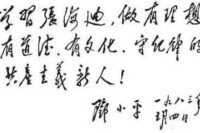 学习張海迪，做有理想，
有道德，有文化，守纪律的
共产主義新人！
邓小平
一九八三年
五月四日